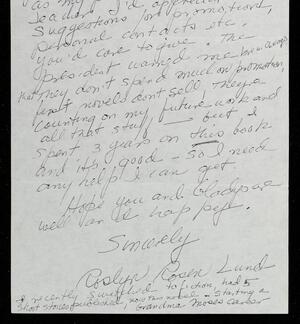 as my
leader, I'd appreciate
suggestions for promotion,
personal contacts etc.
you'd care to give. The
president warned me
that they don't spend much on promotion,
first novels don't sell, they're
counting on my future work and
all that stuff — but, I
spent 3 years on this book
and it's good — so I need
any help I can get.
Hope you and
well and happy.
Sincerely
Roslyn Rosen Lund
I recently switched to fiction, had 5
short stories published, now this novel - starting a
Grandma Moses career